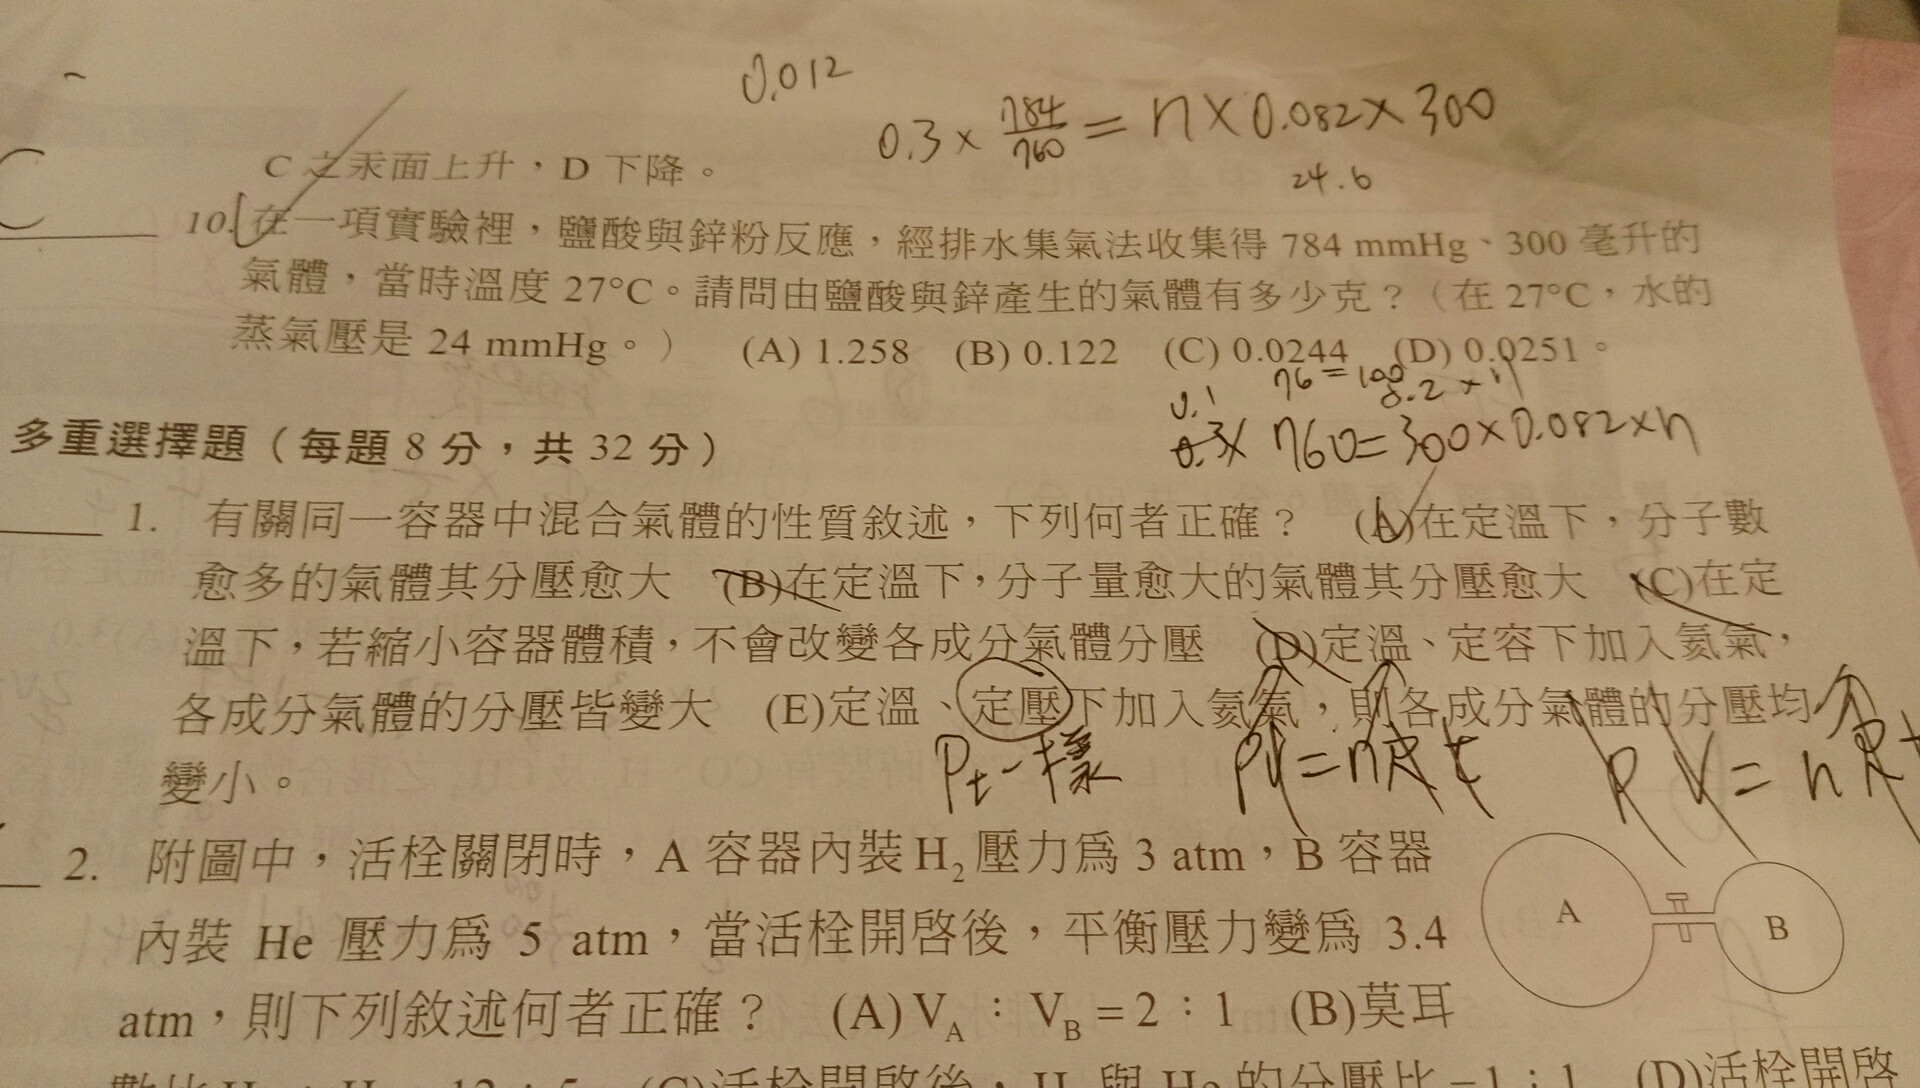 0.012
0.3 × 784/760 = n × 0.082 × 300
24.6
C 之汞面上升，D 下降。
C
10. 在一項實驗裡，鹽酸與鋅粉反應，經排水集氣法收集得 784 mmHg、300 毫升的
氣體，當時溫度 27°C。請問由鹽酸與鋅產生的氣體有多少克？（在 27°C，水的
蒸氣壓是 24 mmHg。） (A) 1.258 (B) 0.122 (C) 0.0244 (D) 0.0251。
76 = 100
0.1
0.3 × 760 = 300 × 0.082 × n
多重選擇題（每題 8 分，共 32 分）
1. 有關同一容器中混合氣體的性質敘述，下列何者正確？ (A)在定溫下，分子數
愈多的氣體其分壓愈大 (B)在定溫下，分子量愈大的氣體其分壓愈大 (C)在定
溫下，若縮小容器體積，不會改變各成分氣體分壓 (D)定溫、定容下加入氦氣，
各成分氣體的分壓皆變大 (E)定溫、定壓下加入氦氣，則各成分氣體的分壓均
變小。
Pt一樣 PV = nRt PV = nRt
2. 附圖中，活栓關閉時，A 容器內裝 H₂ 壓力為 3 atm，B 容器
內裝 He 壓力為 5 atm，當活栓開啟後，平衡壓力變為 3.4
atm，則下列敘述何者正確？ (A) V_A：V_B = 2：1 (B)莫耳
A
B
(C)活栓開啟後，H₂ 與 He 的分壓比 = 1：1 (D)活栓開啟